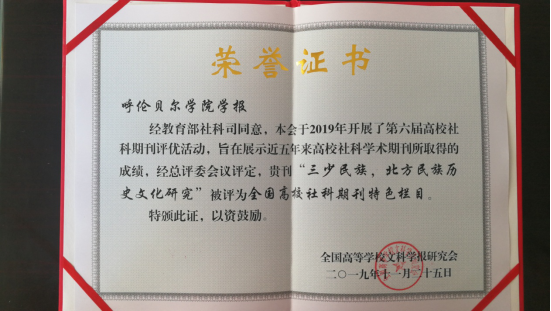 荣誉证书
呼伦贝尔学院学报
经教育部社科司同意，本会于2019年开展了第六届高校社
科期刊评优活动，旨在展示近五年来高校社科学术期刊所取得的
成绩，经总评委会议评定，贵刊“三少民族，北方民族历
史文化研究”被评为全国高校社科期刊特色栏目。
特颁此证，以资鼓励。
全国高等学校文科学报研究会
二〇一九年十一月二十五日